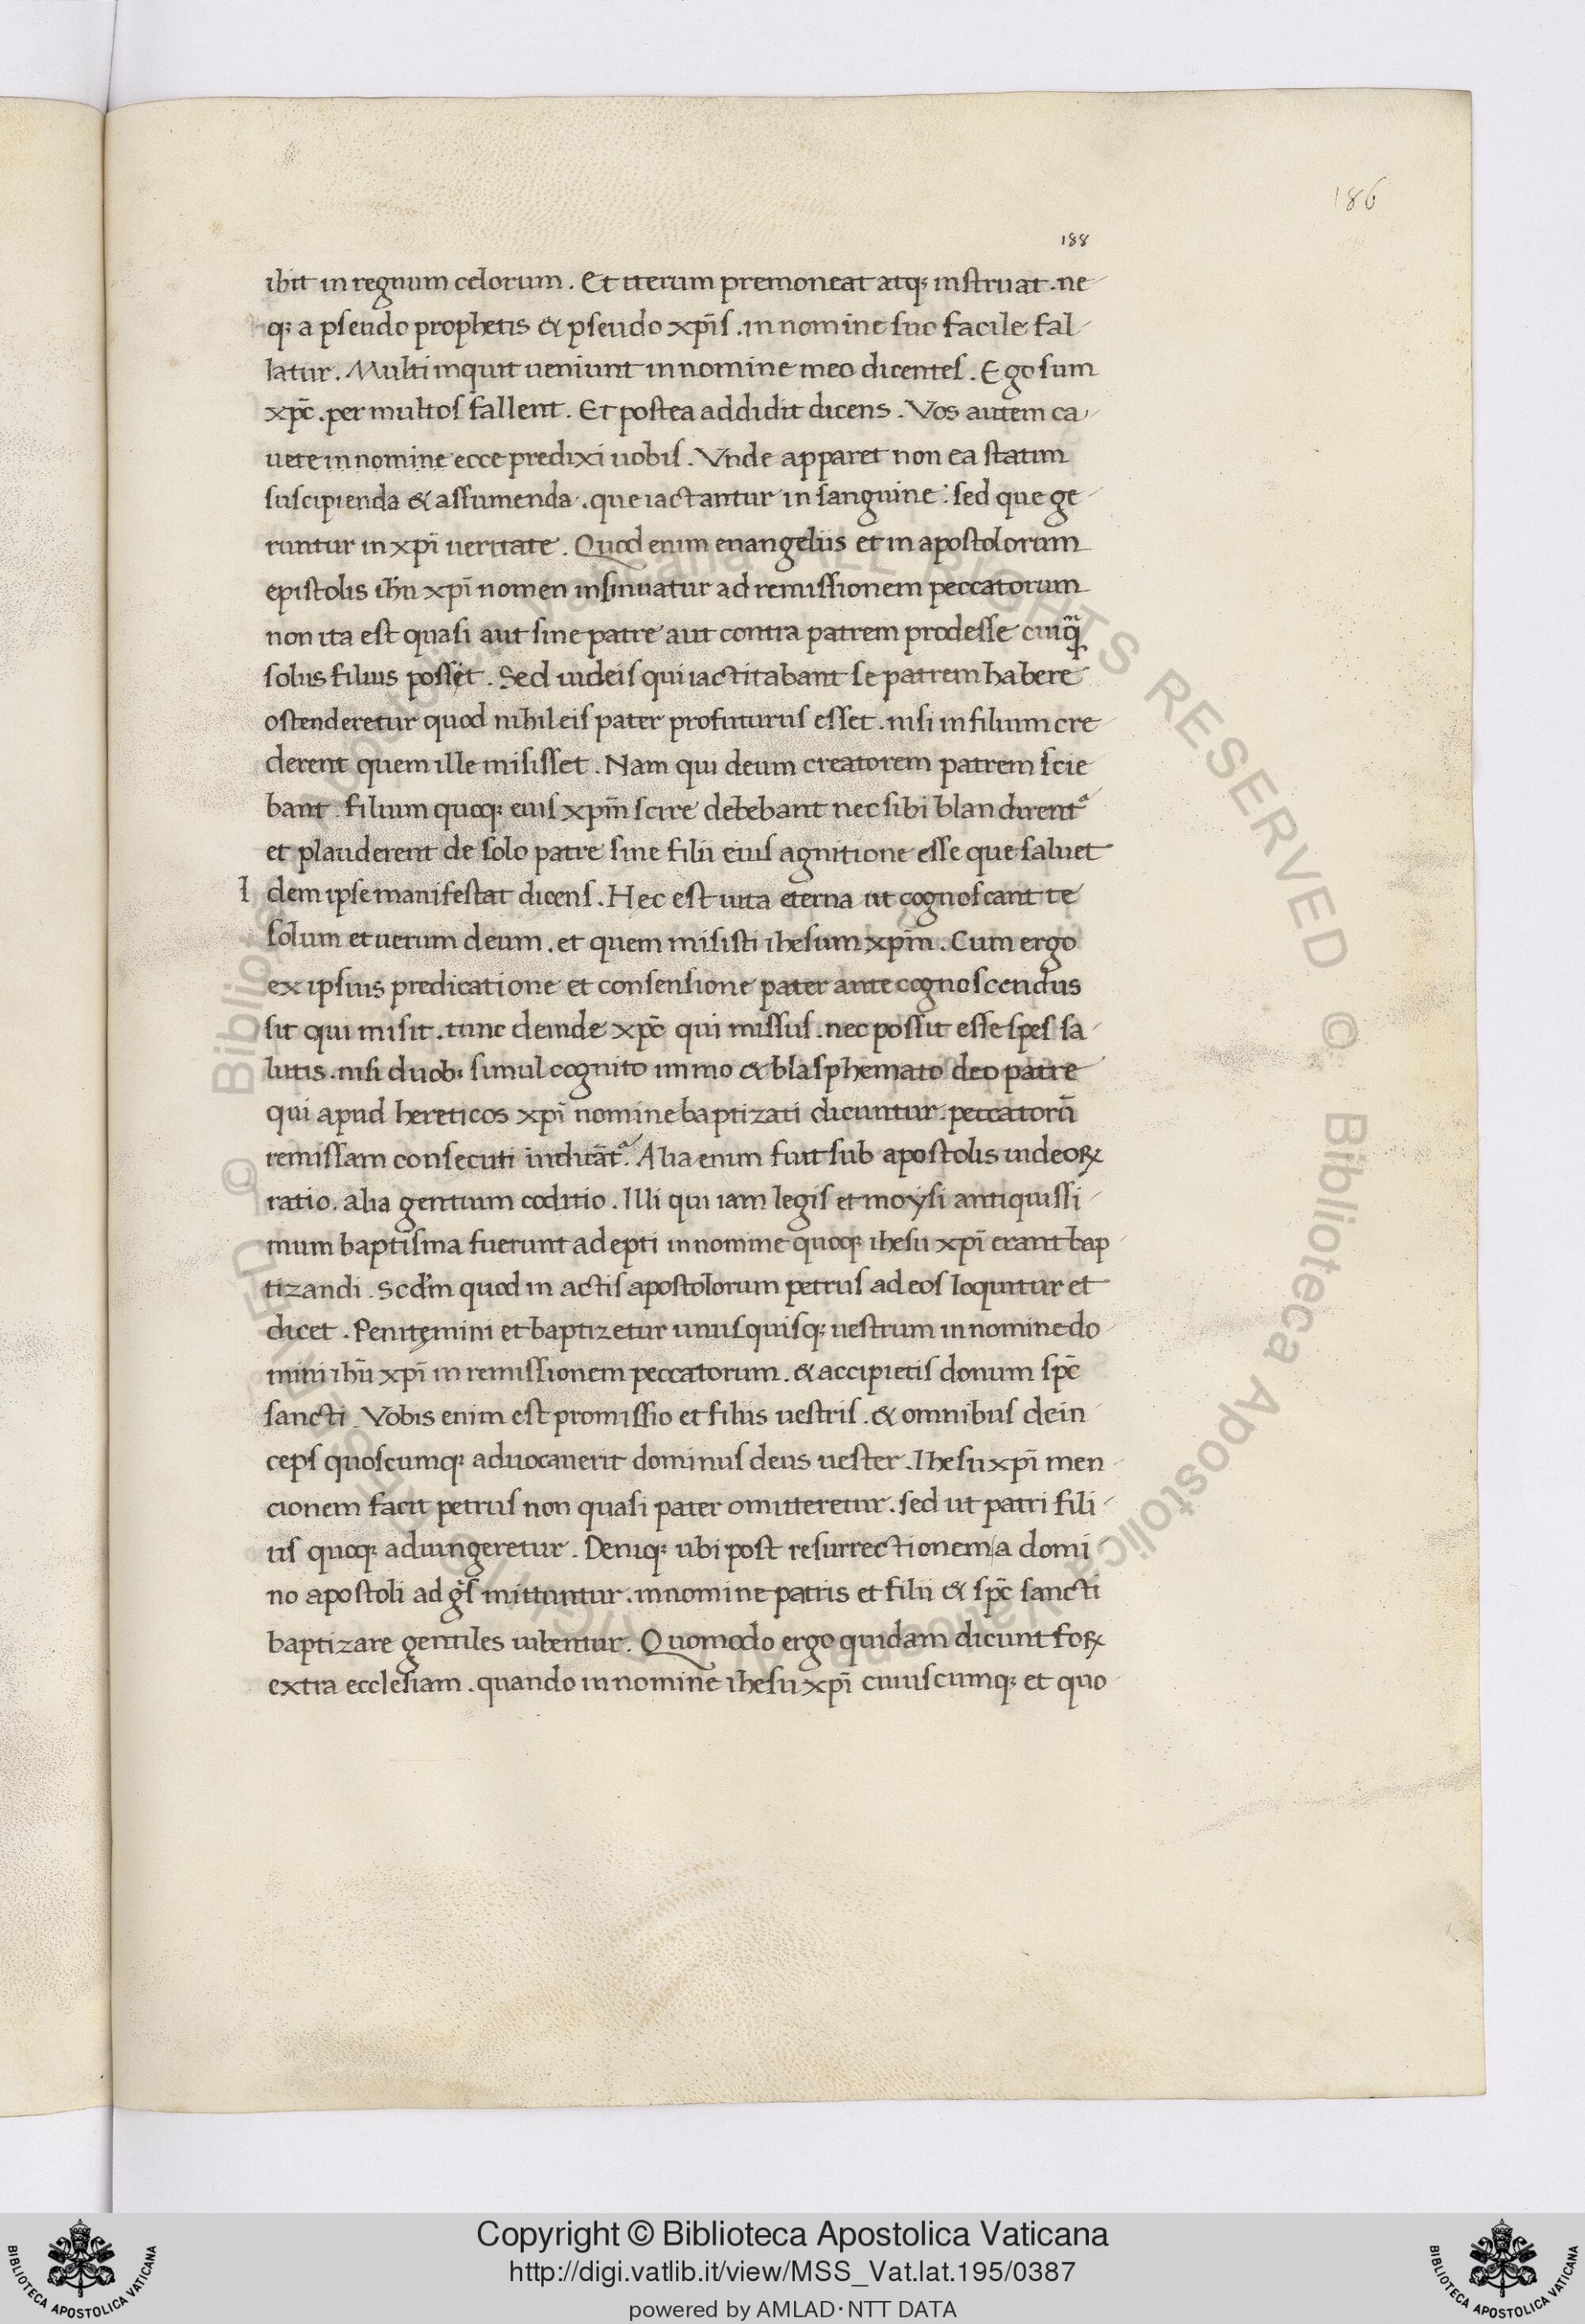 186
188
ibit in regnum celorum. Et iterum premoneat atq; instruat. ne-
q; a pseudo prophetis & pseudo xp̄is. in nomine suo facile fal-
latur. Multi inquit ueniunt in nomine meo dicentes. Ego sum
xp̄c. per multos fallent. Et postea addidit dicens. Vos autem ca-
uete in nomine ecce predixi uobis. Vnde apparet non ea statim
suscipienda & assumenda. que iactantur in sanguine: sed que ge-
runtur in xp̄i ueritate. Quod enim euangeliis et in apostolorum
epistolis ih̄u xp̄i nomen insinuatur ad remissionem peccatorum
non ita est quasi aut sine patre aut contra patrem prodesse cuiq̄
solus filius posset. Sed iudeis qui iactitabant se patrem habere
ostenderetur quod nihil eis pater profuturus esset. nisi in filium cre-
derent quem ille misisset. Nam qui deum creatorem patrem scie
bant. filium quoq; eius xp̄m scire debebant nec sibi blandirent᷑
et plauderent de solo patre sine filii eius agnitione esse que saluet
I dem ipse manifestat dicens. Hec est uita eterna ut cognoscant te
solum et uerum deum. et quem misisti ihesum xp̄m. Cum ergo
ex ipsius predicatione et consensione pater ante cognoscendus
sit qui misit. tunc deinde xp̄c qui missus. nec possit esse spes sa-
lutis. nisi duob; simul cognito immo & blasphemato deo patre
qui apud hereticos xp̄i nomine baptizati dicuntur. peccatorū
remissam consecuti indicāt᷑. Alia enim fuit sub apostolis iudeoꝝ
ratio. alia gentium coditio. Illi qui iam legis et moysi antiquissi-
mum baptisma fuerunt adepti in nomine quoq; ihesu xp̄i erant bap-
tizandi. Scd̄m quod in actis apostolorum petrus ad eos loquitur et
dicet. Penitemini et baptizetur unusquisq; uestrum in nomine do
mini ih̄u xp̄i in remissionem peccatorum. & accipietis donum sp̄c
sancti. Vobis enim est promissio et filiis uestris. & omnibus dein-
ceps quoscumq; aduocauerit dominus deus uester. Ihesu xp̄i men-
cionem facit petrus non quasi pater omitteretur. sed ut patri fili-
us quoq; adiungeretur. Deniq; ubi post resurrectionem a domi-
no apostoli ad g̅s mittuntur. in nomine patris et filii & sp̄c sancti
baptizare gentiles iubentur. Quomodo ergo quidam dicunt foꝝ
extra ecclesiam. quando in nomine ihesu xp̄i cuiuscumq; et quo-
© Biblioteca Apostolica Vaticana ALL RIGHTS RESERVED
© Biblioteca Apostolica Vaticana ALL RIGHTS RESERVED
Copyright © Biblioteca Apostolica Vaticana
http://digi.vatlib.it/view/MSS_Vat.lat.195/0387
powered by AMLAD·NTT DATA
BIBLIOTECA APOSTOLICA VATICANA
BIBLIOTECA APOSTOLICA VATICANA